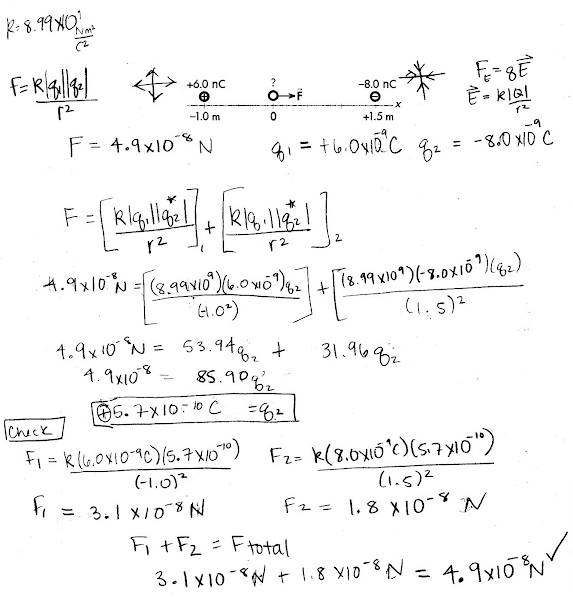 k = 8.99x10⁹ Nm²/C²
F = k|q₁||q₂| / r²
+6.0 nC ? -8.0 nC
⊕ O→F ⊖ x
-1.0 m 0 +1.5 m
F_E = qE⃗
E⃗ = k|Q| / r²
F = 4.9x10⁻⁸ N q₁ = +6.0x10⁻⁹ C q₂ = -8.0x10⁻⁹ C
F = [k|q₁||q₂*| / r²]₁ + [k|q₁||q₂*| / r²]₂
4.9x10⁻⁸ N = [(8.99x10⁹)(6.0x10⁻⁹)q₂ / (-1.0²)] + [(8.99x10⁹)(-8.0x10⁻⁹)(q₂) / (1.5)²]
4.9x10⁻⁸ N = 53.94q₂ + 31.96q₂
4.9x10⁻⁸ = 85.90q₂
⊕5.7x10⁻¹⁰ C = q₂
Check
F₁ = k(6.0x10⁻⁹C)(5.7x10⁻¹⁰) / (-1.0)² F₂ = k(8.0x10⁻⁹C)(5.7x10⁻¹⁰) / (1.5)²
F₁ = 3.1x10⁻⁸ N F₂ = 1.8x10⁻⁸ N
F₁ + F₂ = Ftotal
3.1x10⁻⁸ N + 1.8x10⁻⁸ N = 4.9x10⁻⁸ N ✓